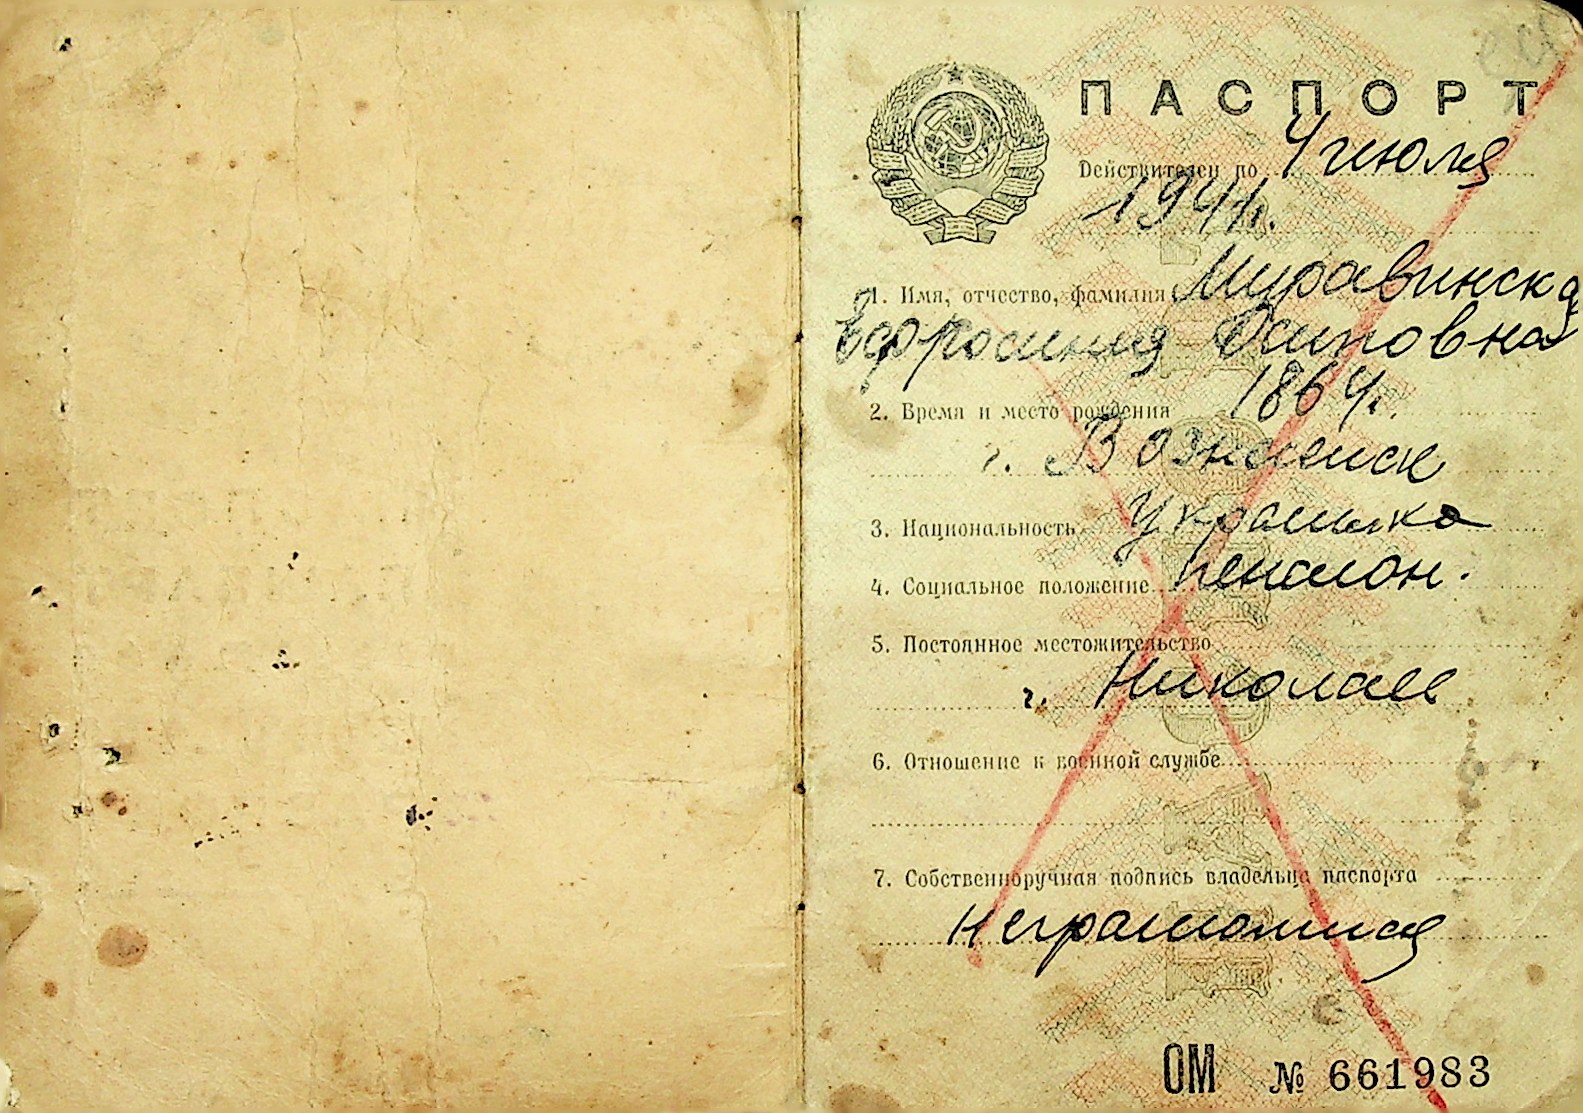 ПАСПОРТ
Действителен по 4 июля
1941 г.
1. Имя, отчество, фамилия Муравинская
Ефросиния Осиповна
2. Время и место рождения 1864 г.
г. Вознесенск
3. Национальность украинка
4. Социальное положение пенсион.
5. Постоянное местожительство
г. Николаев
6. Отношение к военной службе
7. Собственноручная подпись владельца паспорта
неграмотная
ОМ № 661983